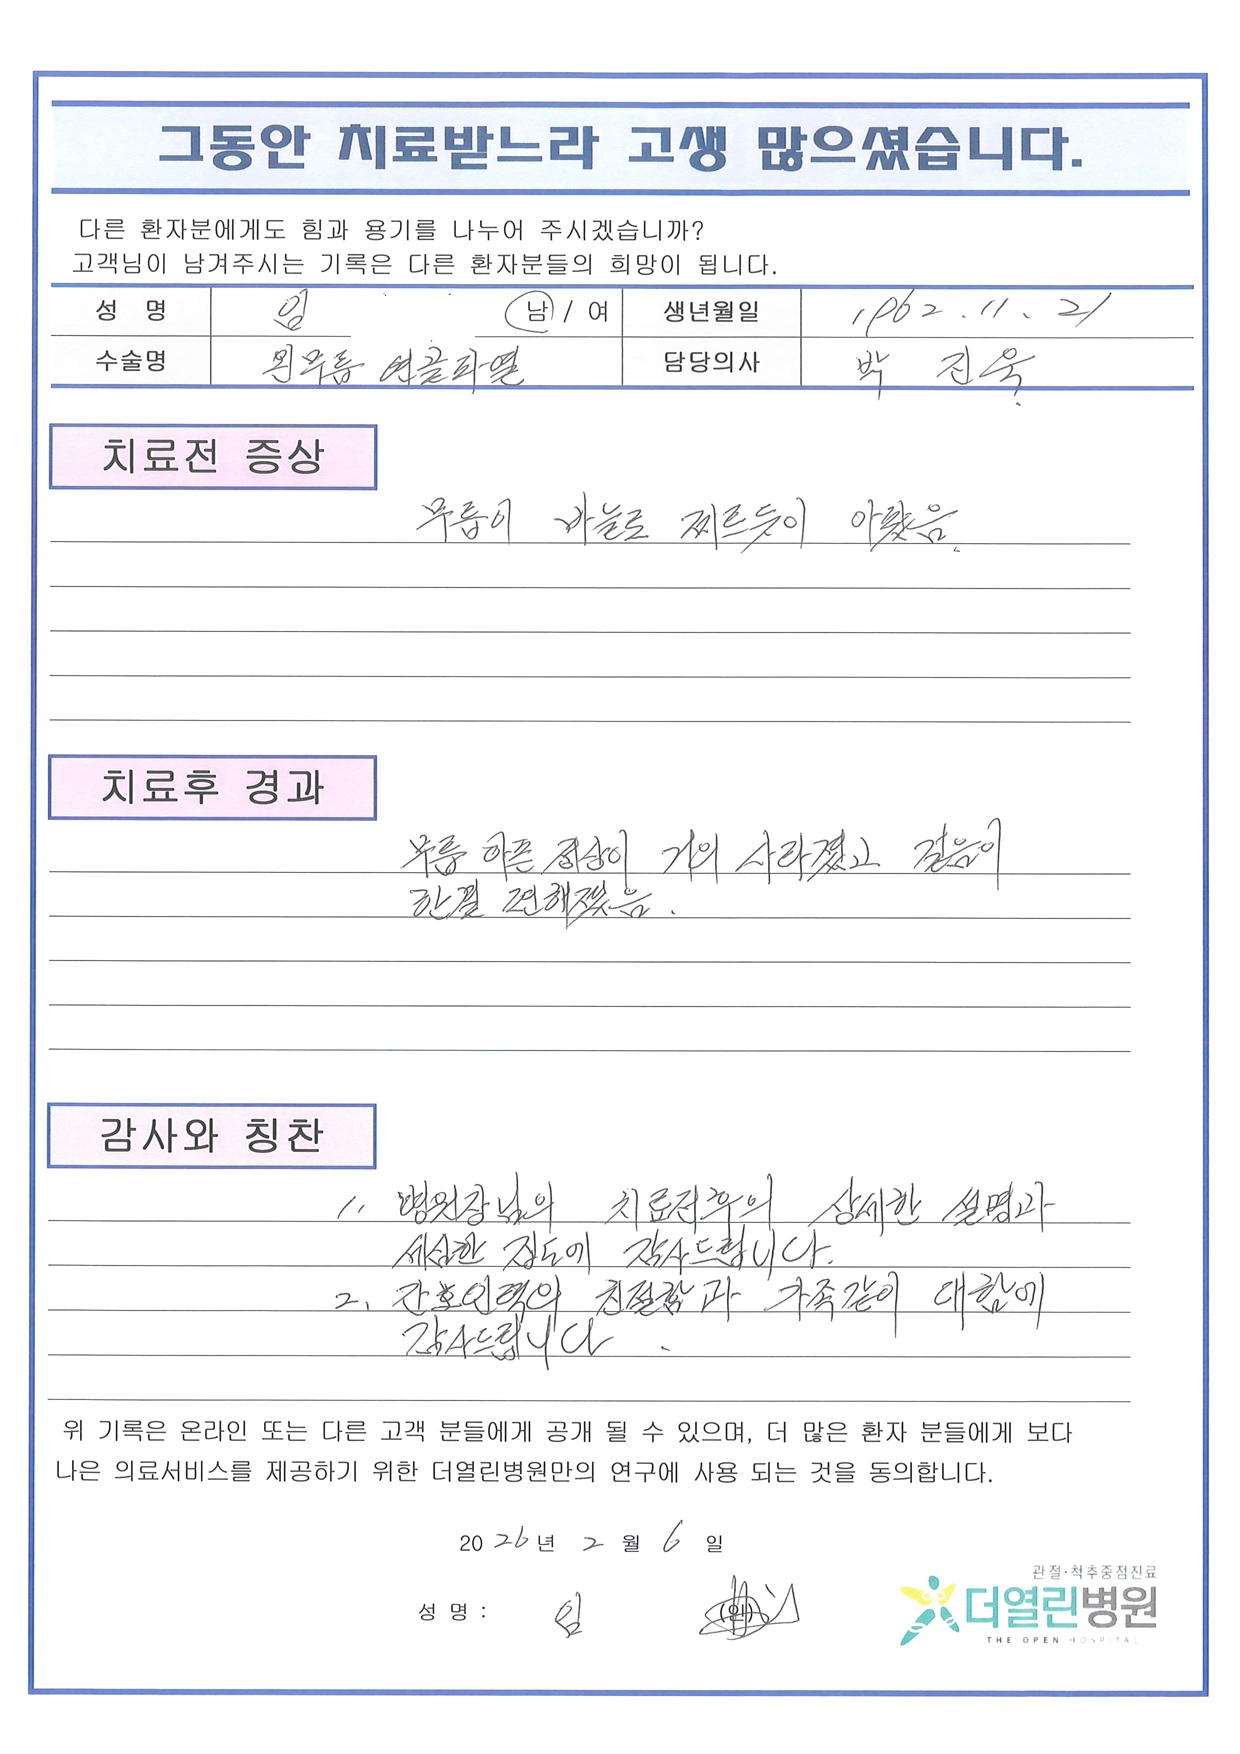 그동안 치료받느라 고생 많으셨습니다.
다른 환자분에게도 힘과 용기를 나누어 주시겠습니까?
고객님이 남겨주시는 기록은 다른 환자분들의 희망이 됩니다.
성 명 임 남 / 여 생년월일 1962. 11. 21
수술명 왼무릎 연골파열 담당의사 박 진욱
치료전 증상
무릎이 바늘로 찌르듯이 아팠음.
치료후 경과
무릎 아픈 증상이 거의 사라졌고 걸음이
한결 편해졌음.
감사와 칭찬
1. 병원장님의 치료전후의 상세한 설명과
세심한 집도에 감사드립니다.
2. 간호인력의 친절함과 가족같이 대함에
감사드립니다.
위 기록은 온라인 또는 다른 고객 분들에게 공개 될 수 있으며, 더 많은 환자 분들에게 보다
나은 의료서비스를 제공하기 위한 더열린병원만의 연구에 사용 되는 것을 동의합니다.
2026년 2 월 6 일
성 명 : 임 (인)
관절·척추중점진료
더열린병원
THE OPEN HOSPITAL